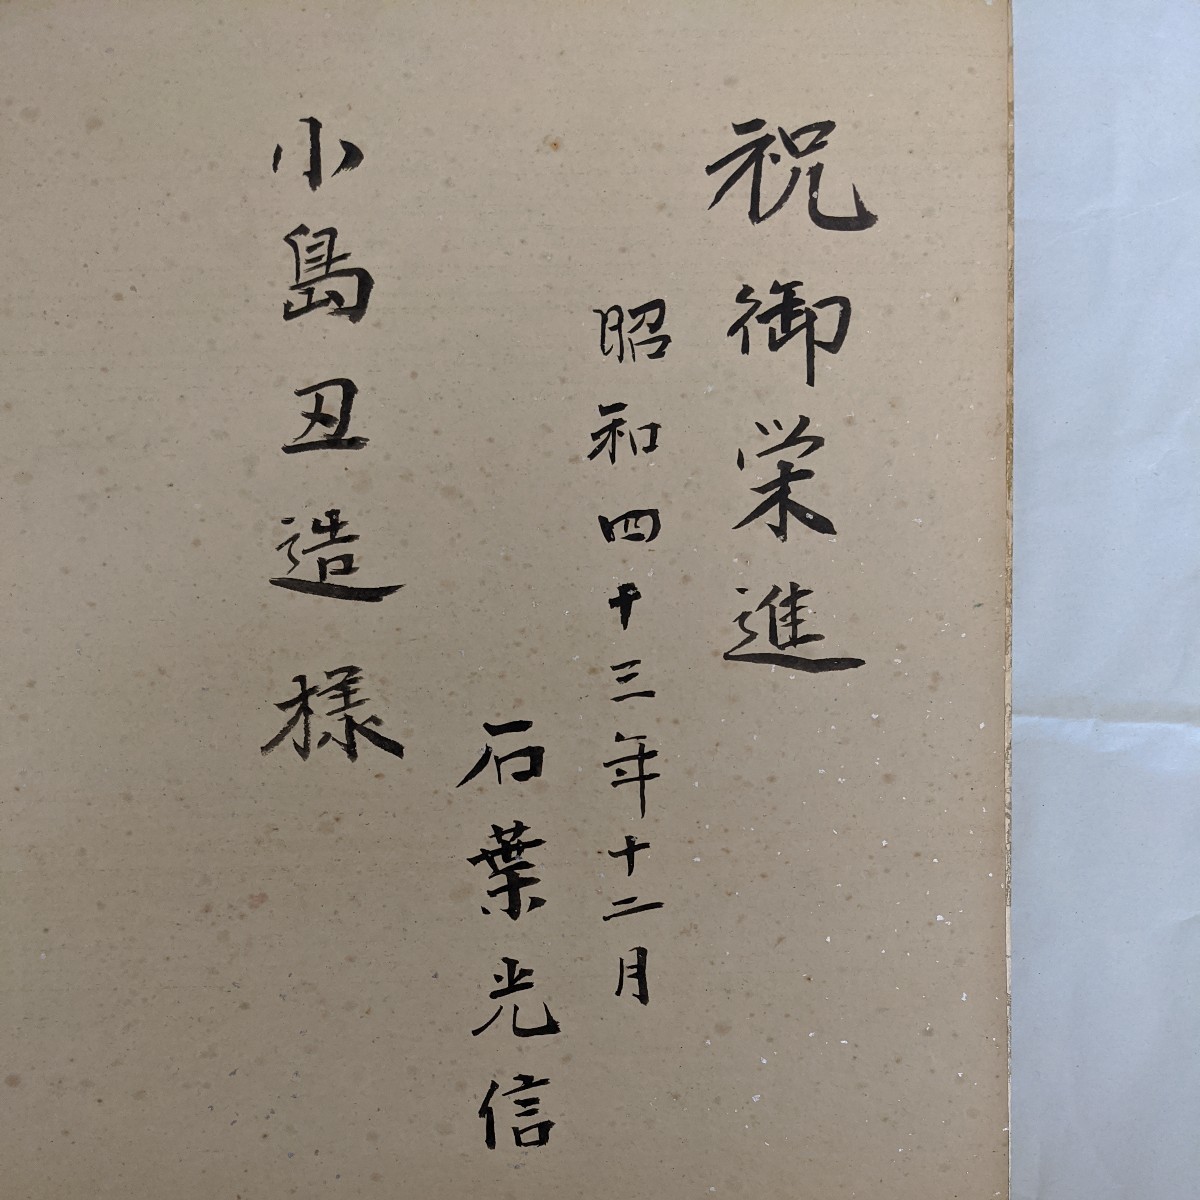 祝御栄進
昭和四十三年十二月
石葉光信
小島丑造様